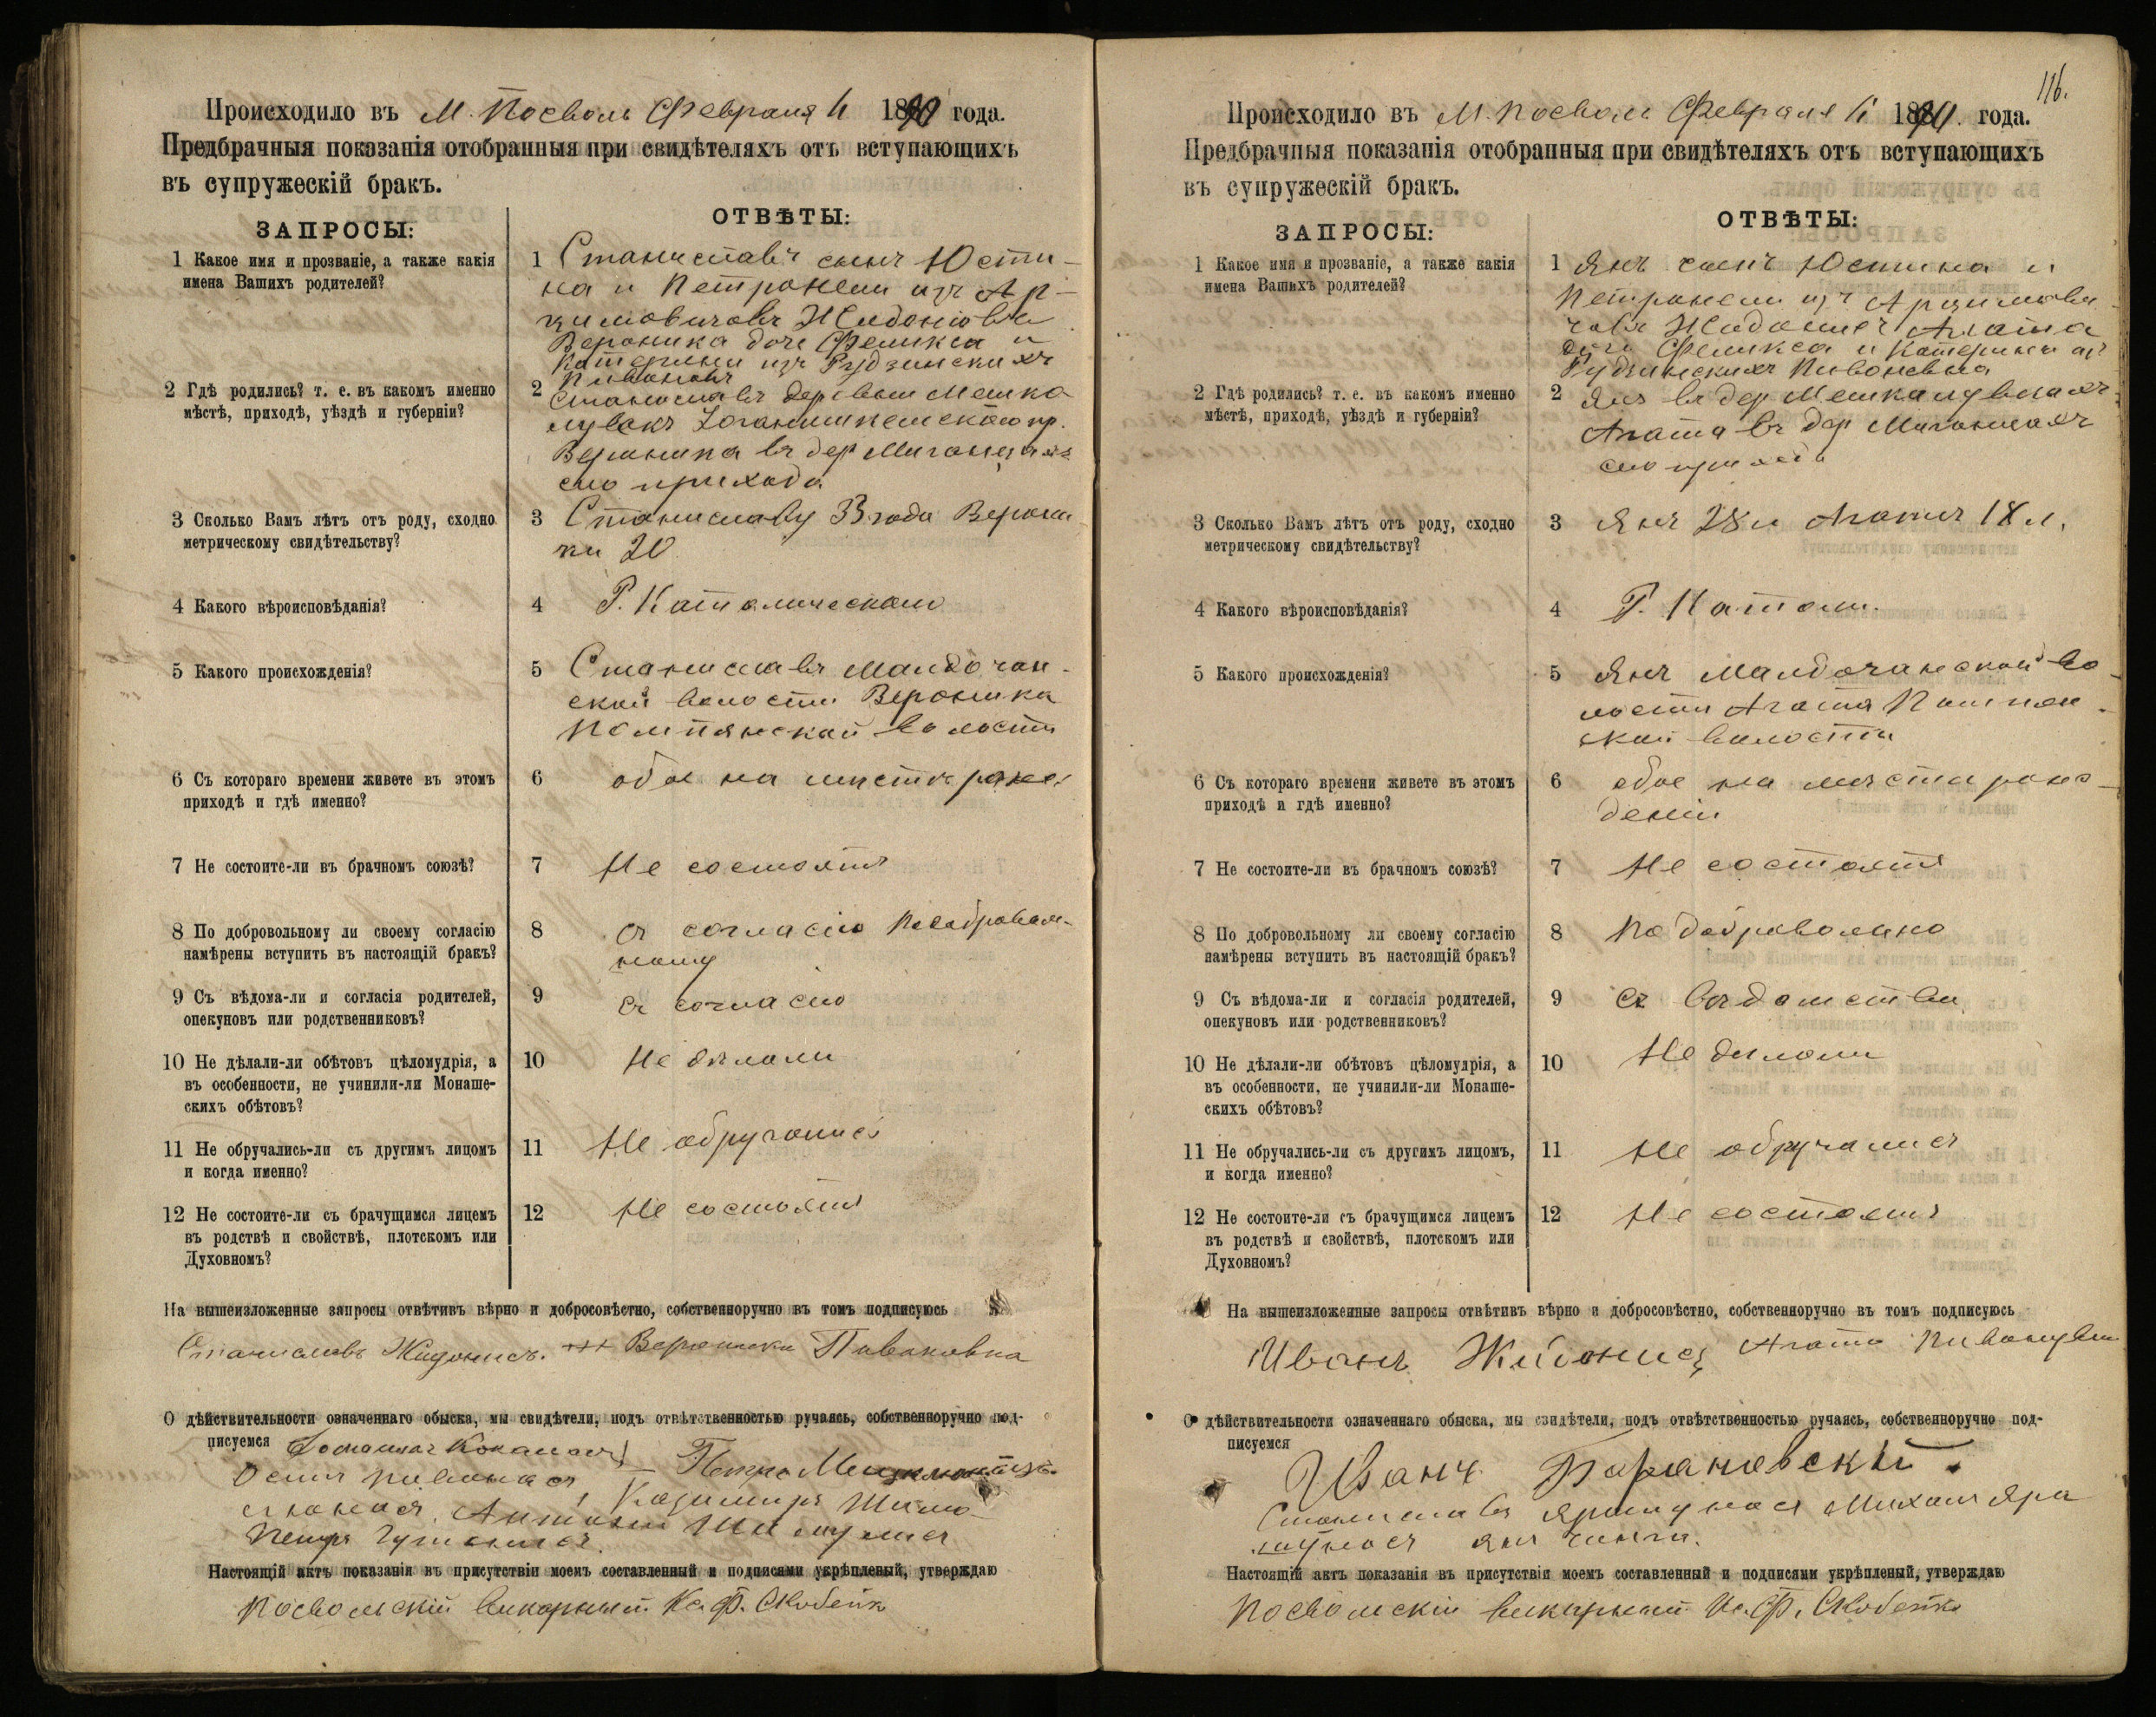 Происходило въ М. Посволь Февраля 4 1890 года.
Предбрачныя показанія отобранныя при свидѣтеляхъ отъ вступающихъ
въ супружескій бракъ.
ЗАПРОСЫ:
ОТВѢТЫ:
1 Какое имя и прозваніе, а также какія
имена Вашихъ родителей?
1 Станиславъ сынъ Юсти-
на и Петронели изъ Ар-
цимовичовъ Жидонісъ
Вероника дочь Феликса и
Катерины изъ Рудзинскихъ
2 Гдѣ родились? т. е. въ какомъ именно
мѣстѣ, приходѣ, уѣздѣ и губерніи?
2 Станиславъ деревни Мешка
пр.
Вероника въ дер
сего прихода
3 Сколько Вамъ лѣтъ отъ роду, сходно
метрическому свидѣтельству?
3 Станиславу 33 года Верони
ки 20
4 Какого вѣроисповѣданія?
4 Р. Католическаго
5 Какого происхожденія?
5 Станиславъ Малдочан-
ской волости Вероника
Помпянской волости
6 Съ котораго времени живете въ этомъ
приходѣ и гдѣ именно?
6 обое на мѣстѣ
7 Не состоите-ли въ брачномъ союзѣ?
7 Не состоятъ
8 По добровольному ли своему согласію
намѣрены вступить въ настоящій бракъ?
8 съ согласію
ному
9 Съ вѣдома-ли и согласія родителей,
опекуновъ или родственниковъ?
9 съ согласію
10 Не дѣлали-ли обѣтовъ цѣломудрія, а
въ особенности, не учинили-ли Монаше-
скихъ обѣтовъ?
10 Не дѣлали
11 Не обручались-ли съ другимъ лицомъ
и когда именно?
11 Не обручались
12 Не состоите-ли съ брачущимся лицемъ
въ родствѣ и свойствѣ, плотскомъ или
Духовномъ?
12 Не состоятъ
На вышеизложенные запросы отвѣтивъ вѣрно и добросовѣстно, собственноручно въ томъ подписуюсь
Станиславъ Жидонисъ. +++ Вероника Пивановна
О дѣйствительности означеннаго обыска, мы свидѣтели, подъ отвѣтственностью ручаясь, собственноручно под-
писуемся
Осипъ Петръ
Казимиръ
Антоній
Петръ
Настоящій актъ показанія въ присутствіи моемъ составленный и подписями укрѣпленый, утверждаю
Посвольскій викарный Кс. Ф. Скобейко
116.
Происходило въ М. Посволь Февраля 1890. года.
Предбрачныя показанія отобранныя при свидѣтеляхъ отъ вступающихъ
въ супружескій бракъ.
ЗАПРОСЫ:
ОТВѢТЫ:
1 Какое имя и прозваніе, а также какія
имена Вашихъ родителей?
1 Янъ сынъ Юстина и
Петронели изъ Арцимови
човъ Жидонисъ Агата
дочь Феликса и Катерины изъ
Рудзинскихъ
2 Гдѣ родились? т. е. въ какомъ именно
мѣстѣ, приходѣ, уѣздѣ и губерніи?
2 Янъ въ дер
Агата въ дер
сего прихода
3 Сколько Вамъ лѣтъ отъ роду, сходно
метрическому свидѣтельству?
3 Янъ 28 л Агата 18 л.
4 Какого вѣроисповѣданія?
4 Р. Катол.
5 Какого происхожденія?
5 Янъ Малдочанской во
лости Агата Помпян-
ской волости
6 Съ котораго времени живете въ этомъ
приходѣ и гдѣ именно?
6 обое на мѣстѣ рож-
деніи
7 Не состоите-ли въ брачномъ союзѣ?
7 Не состоятъ
8 По добровольному ли своему согласію
намѣрены вступить въ настоящій бракъ?
8 По добровольно
9 Съ вѣдома-ли и согласія родителей,
опекуновъ или родственниковъ?
9 съ вѣдомства
10 Не дѣлали-ли обѣтовъ цѣломудрія, а
въ особенности, не учинили-ли Монаше-
скихъ обѣтовъ?
10 Не дѣлали
11 Не обручались-ли съ другимъ лицомъ,
и когда именно?
11 Не обручались
12 Не состоите-ли съ брачущимся лицемъ
въ родствѣ и свойствѣ, плотскомъ или
Духовномъ?
12 Не состоятъ
На вышеизложенные запросы отвѣтивъ вѣрно и добросовѣстно, собственноручно въ томъ подписуюсь
Иванъ Жидонисъ Агата
О дѣйствительности означеннаго обыска, мы свидѣтели, подъ отвѣтственностью ручаясь, собственноручно под-
писуемся
Иванъ Барановскій.
Станиславъ Михаилъ
Янъ
Настоящій актъ показанія въ присутствіи моемъ составленный и подписями укрѣпленый, утверждаю
Посвольскій викарный Кс. Ф. Скобейко